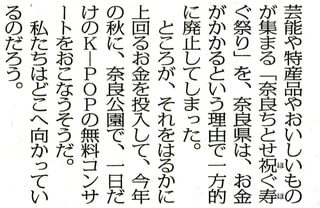 芸能や特産品やおいしいもの
が集まる「奈良ちとせ祝ぐ寿
ほ ほ
ぐ祭り」を、奈良県は、お金
がかかるという理由で一方的
に廃止してしまった。
ところが、それをはるかに
上回るお金を投入して、今年
の秋に、奈良公園で、一日だ
けのK－POPの無料コンサ
ートをおこなうそうだ。
私たちはどこへ向かってい
るのだろう。